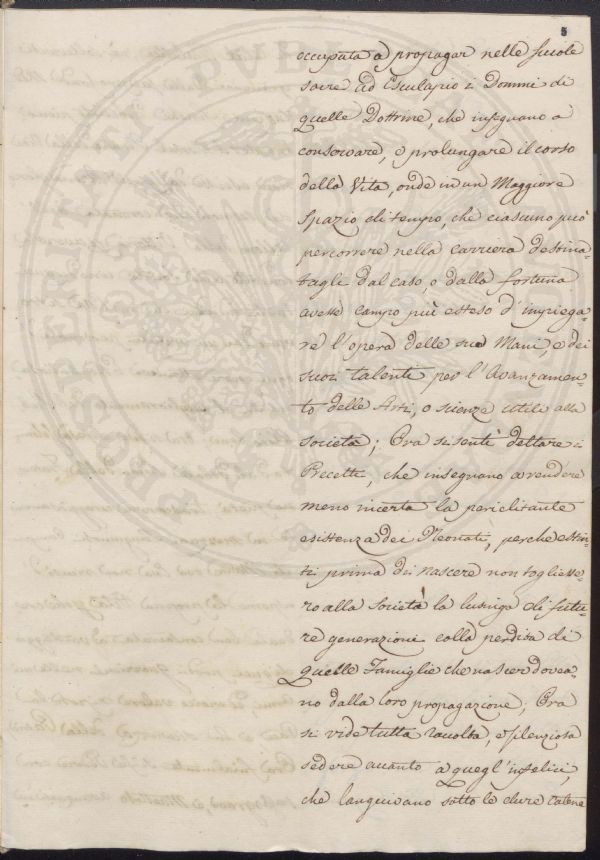 5
occupata à propagar nelle scuole
sacre ad Esculapio i Dommi di
quelle Dottrine, che insegnano a
conservare, e prolungare il corso
della Vita, onde in un Maggiore
spazio di tempo, che ciascuno può
percorrere nella carriera destina=
tagli dal caso, o dalla fortuna
avesse campo più esteso d'impiega=
re l'opera delle sue Mani, e dei
suoi talenti per l'Avanzamen=
to delle Arti, o scienze utili alla
società; Ora si sentì dettare i
Precetti, che insegnano a rendere
meno incerta la periclitante
esistenza dei Neonati, perche estin=
ti prima di nascere non togliesse=
ro alla Società la lusinga di futu=
re generazioni colla perdita di
quelle Famiglie che nascer dovea=
no dalla loro propagazione; Ora
si vide tutta raccolta, e silenziosa
sedere accanto a quegl'infelici,
che languivano sotto le dure catene